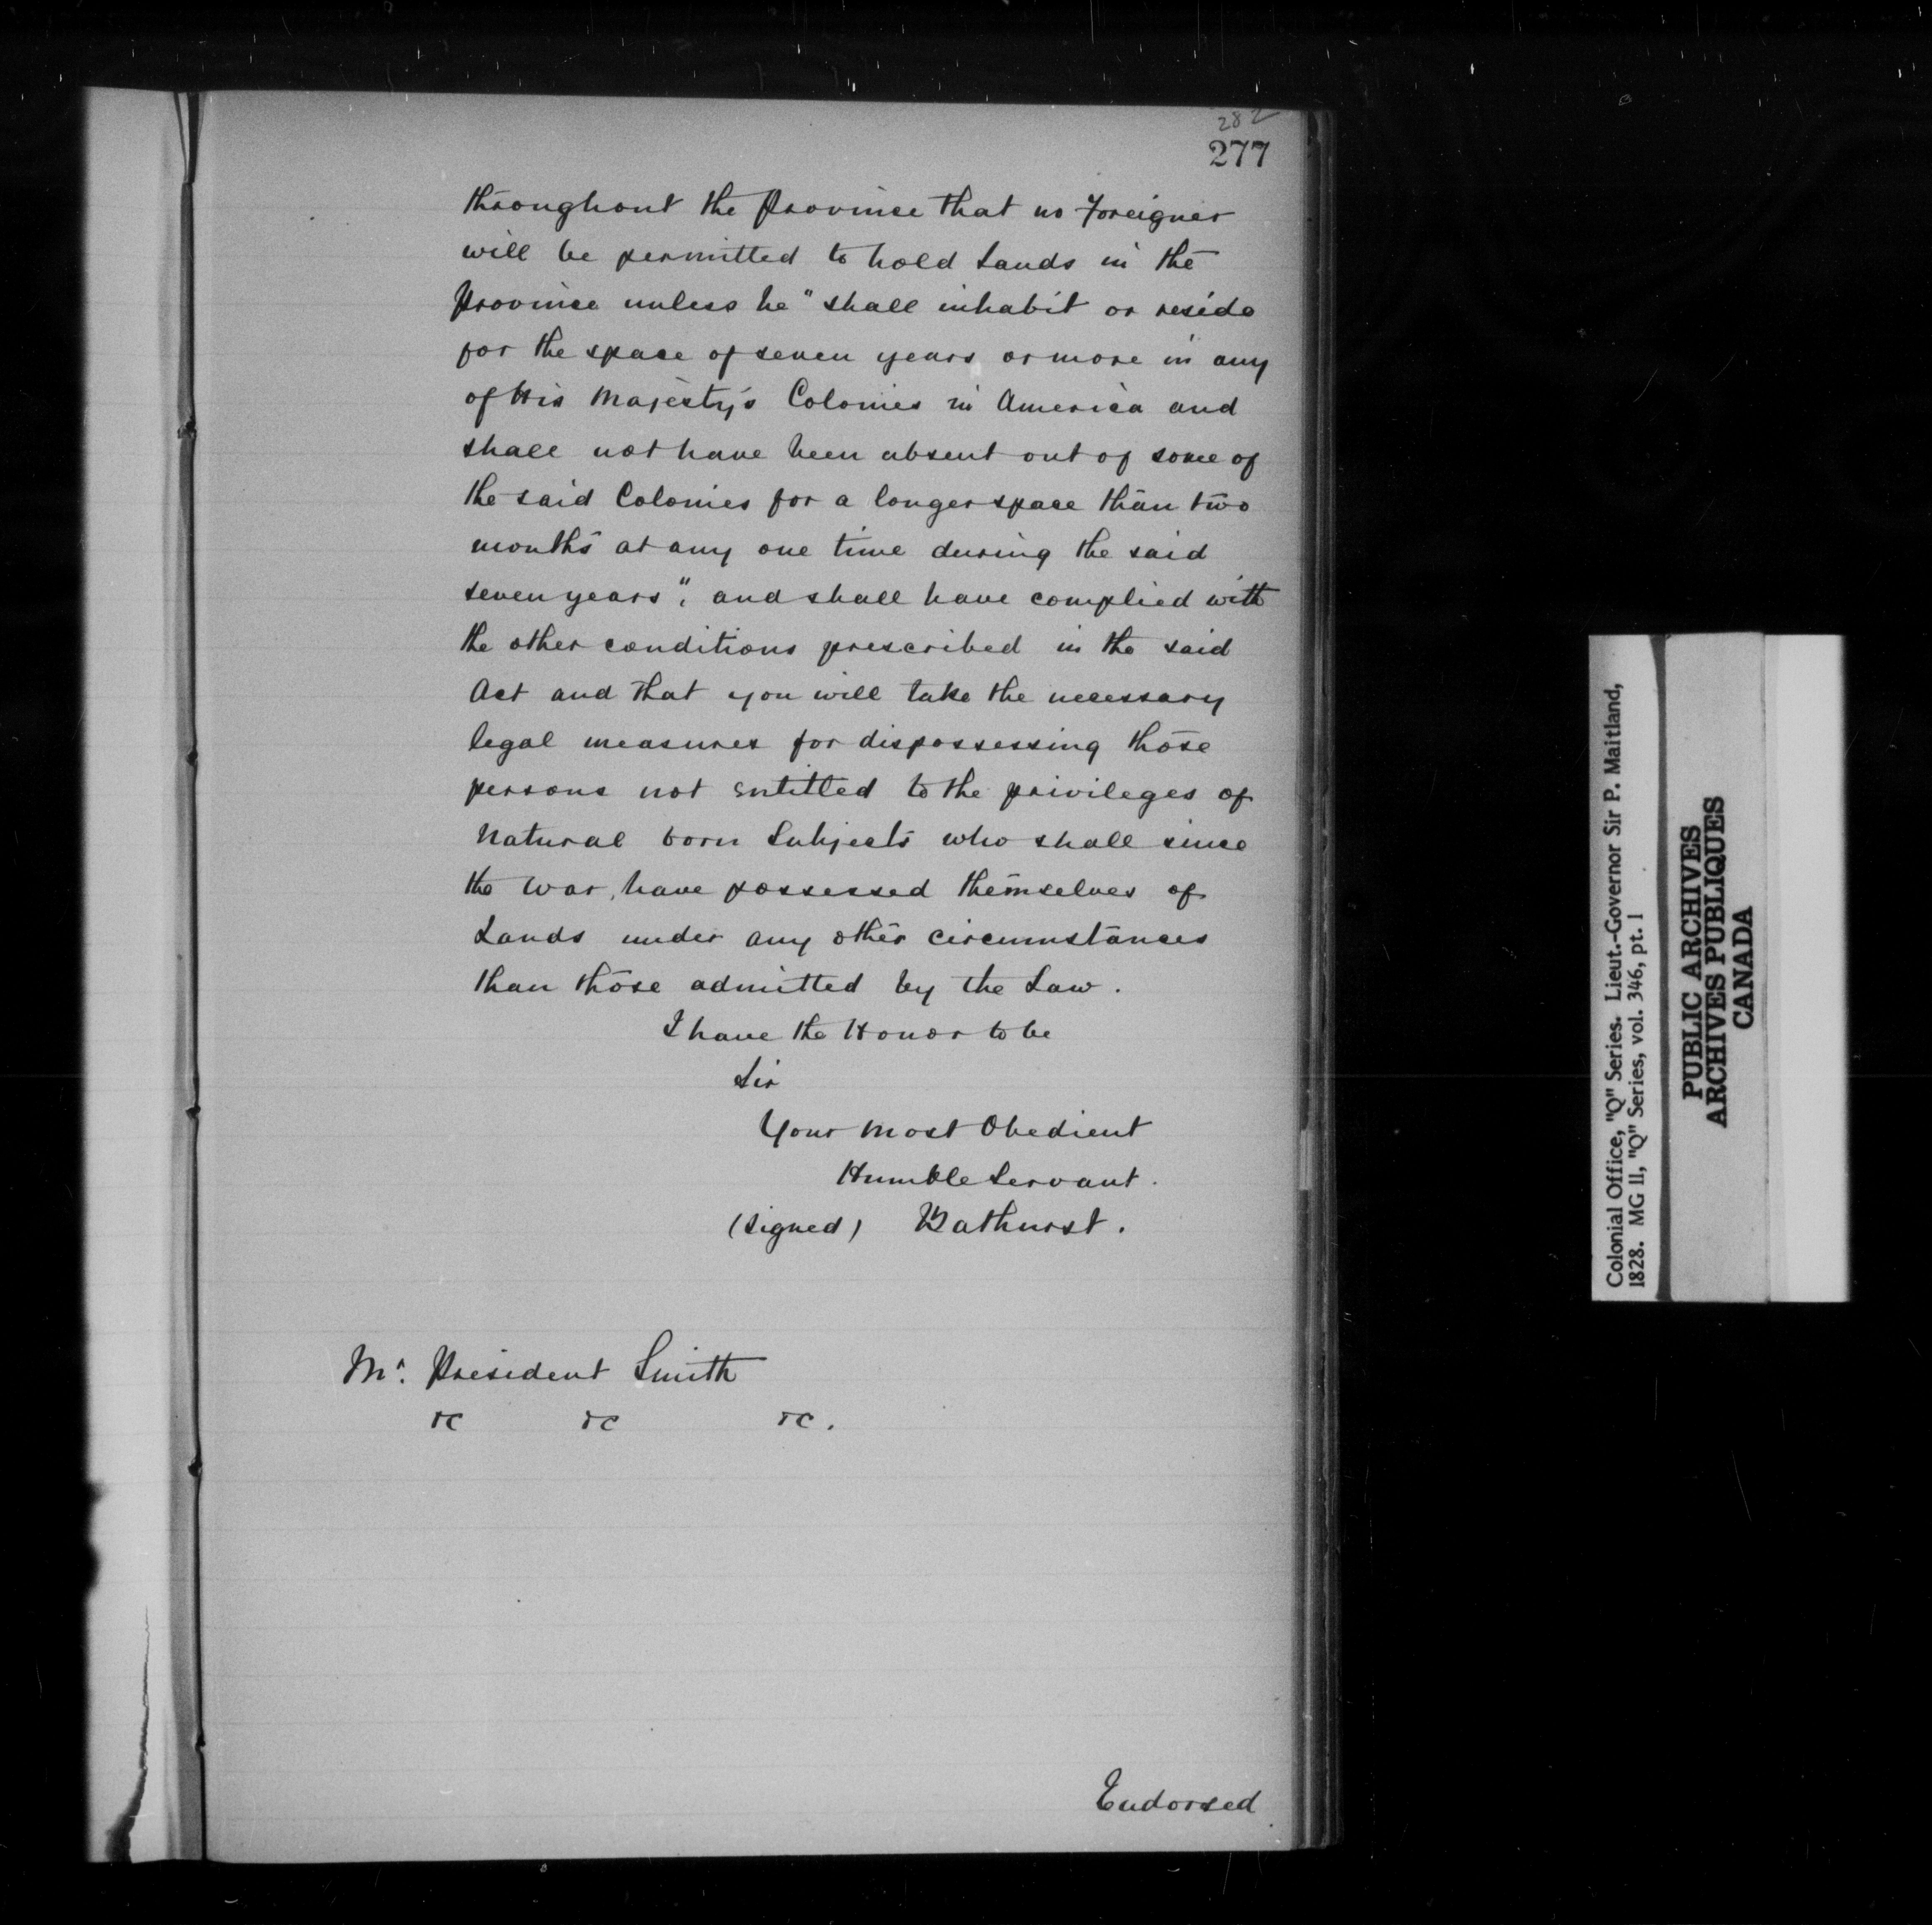 282
277
throughout the Province that no Foreigner
will be permitted to hold Lands in the
Province unless he "shall inhabit or reside
for the space of seven years or more in any
of His Majesty's Colonies in America and
shall not have been absent out of some of
the said Colonies for a longer space than two
months at any one time during the said
seven years", and shall have complied with
the other conditions prescribed in the said
Act and that you will take the necessary
legal measures for dispossessing those
persons not entitled to the privileges of
Natural born Subjects who shall since
the War, have possessed themselves of
Lands under any other circumstances
than those admitted by the Law.
I have the Honor to be
Sir
Your Most Obedient
Humble Servant.
(Signed) Bathurst.
Mr. President Smith
&c &c &c.
Endorsed
Colonial Office, "Q" Series. Lieut.-Governor Sir P. Maitland,
1828. MG 11, "Q" Series, vol. 346, pt. 1
PUBLIC ARCHIVES
ARCHIVES PUBLIQUES
CANADA